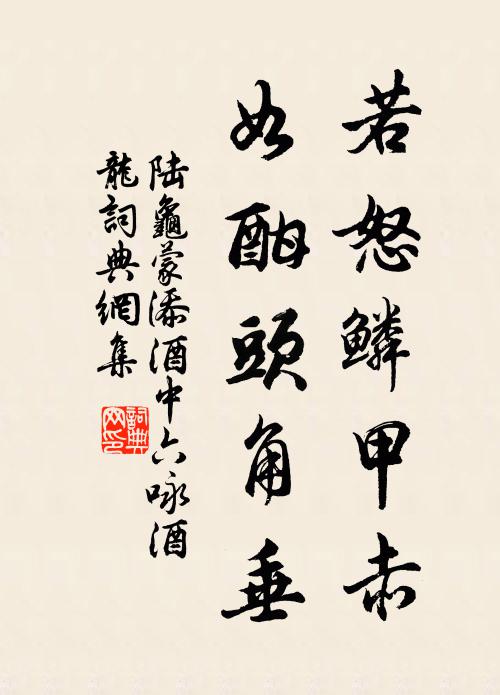 若怒鱗甲赤
如酣頭角垂
陸龜蒙添酒中六咏酒
龍詞典網集
詞典网印